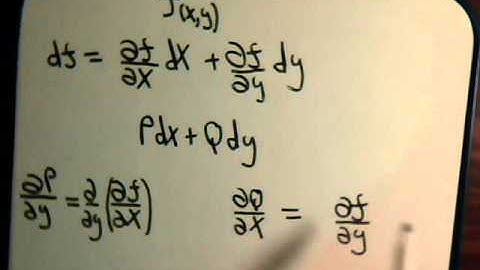 f(x,y)
df = ∂f/∂x dx + ∂f/∂y dy
Pdx + Qdy
∂P/∂y = ∂/∂y (∂f/∂x) ∂Q/∂x = ∂f/∂y